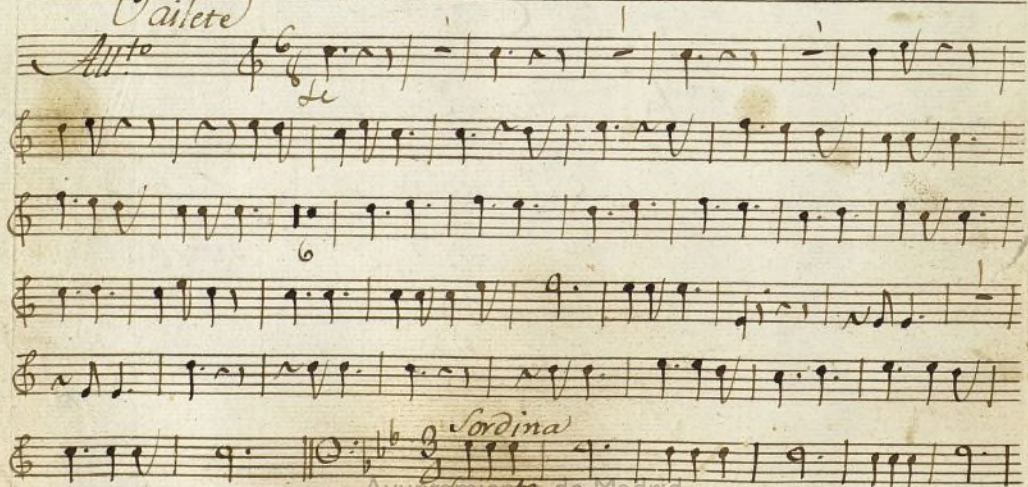 Bailete
All.to 6 8
Le
6
Sordina
3
Ayuntamiento de Madrid